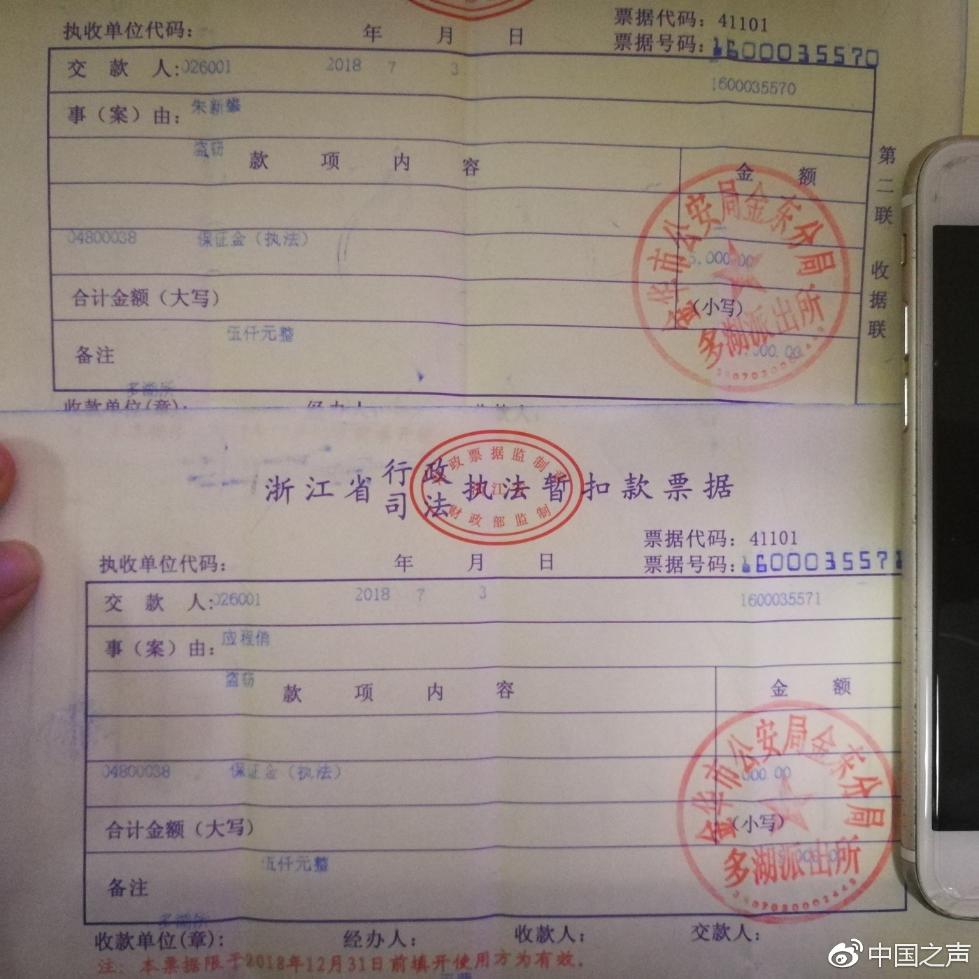 执收单位代码： 年 月 日 票据代码：41101
票据号码：1600035570
交 款 人：026001 2018 7 3 1600035570
事（案）由：朱新
盗窃
款 项 内 容 金 额
04800038 保证金（执法） 5,000.00
合计金额（大写） （小写）
伍仟元整 000.00
备注
多湖所
收款单位(章)： 经办人： 收款人：
第二联 收据联
金华市公安局金东分局
多湖派出所
浙江省行政司法执法暂扣款票据
财政部监制
票据代码：41101
执收单位代码： 年 月 日 票据号码：1600035571
交 款 人：026001 2018 7 3 1600035571
事（案）由：应程俏
盗窃
款 项 内 容 金 额
04800038 保证金（执法） 000.00
合计金额（大写） （小写）
伍仟元整
备注
多湖所
金华市公安局金东分局
多湖派出所
收款单位(章)： 经办人： 收款人： 交款人：
注：本票据限于2018年12月31日前填开使用方为有效。
中国之声